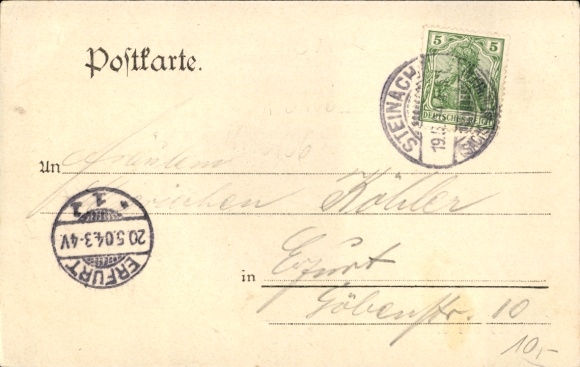 Postkarte.
5 5
DEUTSCHES REICH
STEINACH
19.5.
An Fräulein
Köhler
ERFURT
20.5.04.3-4V.
* 1 1
in Erfurt
Göbenstr. 10
10,-